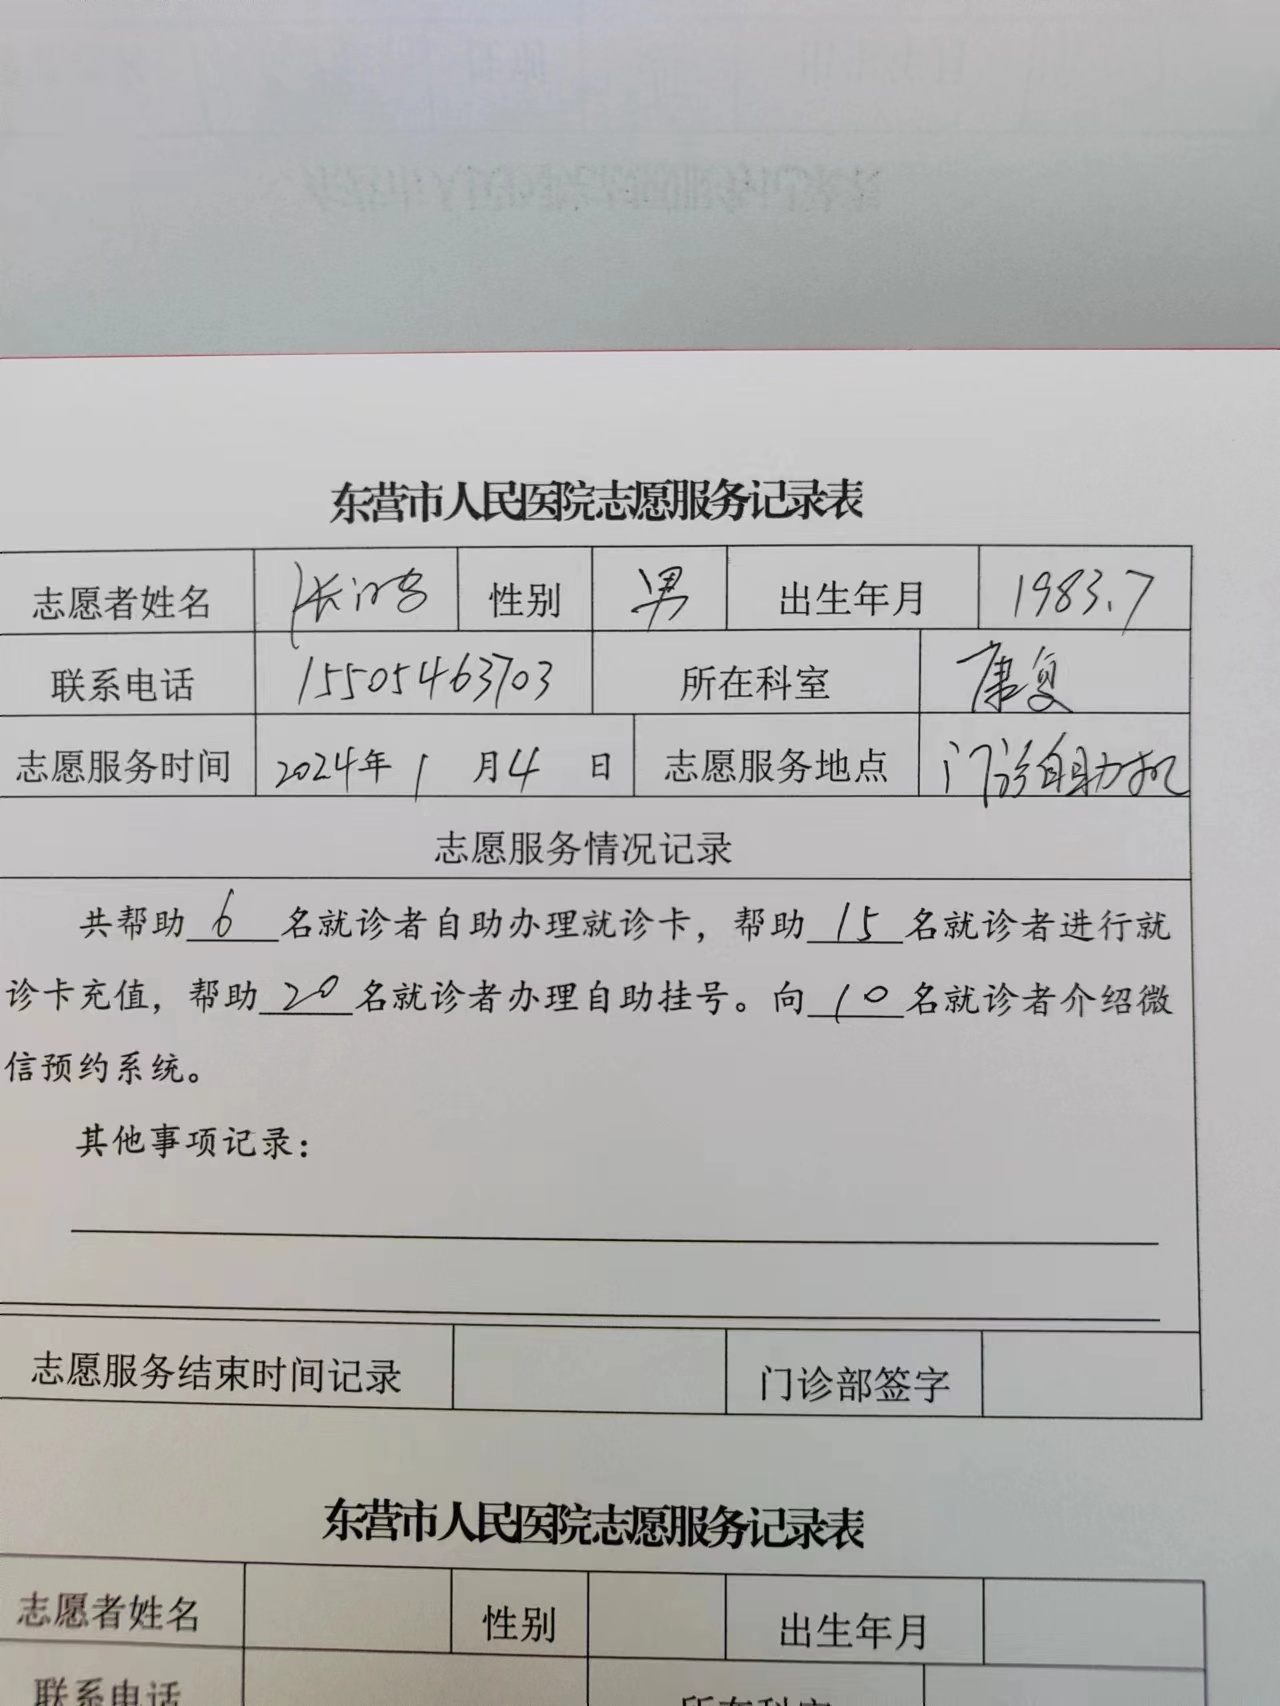 东营市人民医院志愿服务记录表
志愿者姓名 张 性别 男 出生年月 1983.7
联系电话 15505463703 所在科室 康复
志愿服务时间 2024年 1 月 4 日 志愿服务地点 门诊自助机
志愿服务情况记录
共帮助 6 名就诊者自助办理就诊卡，帮助 15 名就诊者进行就
诊卡充值，帮助 20 名就诊者办理自助挂号。向 10 名就诊者介绍微
信预约系统。
其他事项记录：
志愿服务结束时间记录 门诊部签字
东营市人民医院志愿服务记录表
志愿者姓名 性别 出生年月
联系电话 所在科室